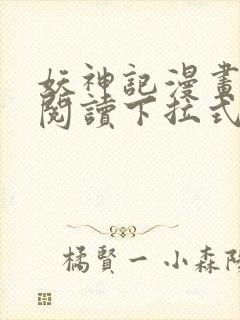 妖神記漫畫
閱讀下拉式
橘賢一 小森陽